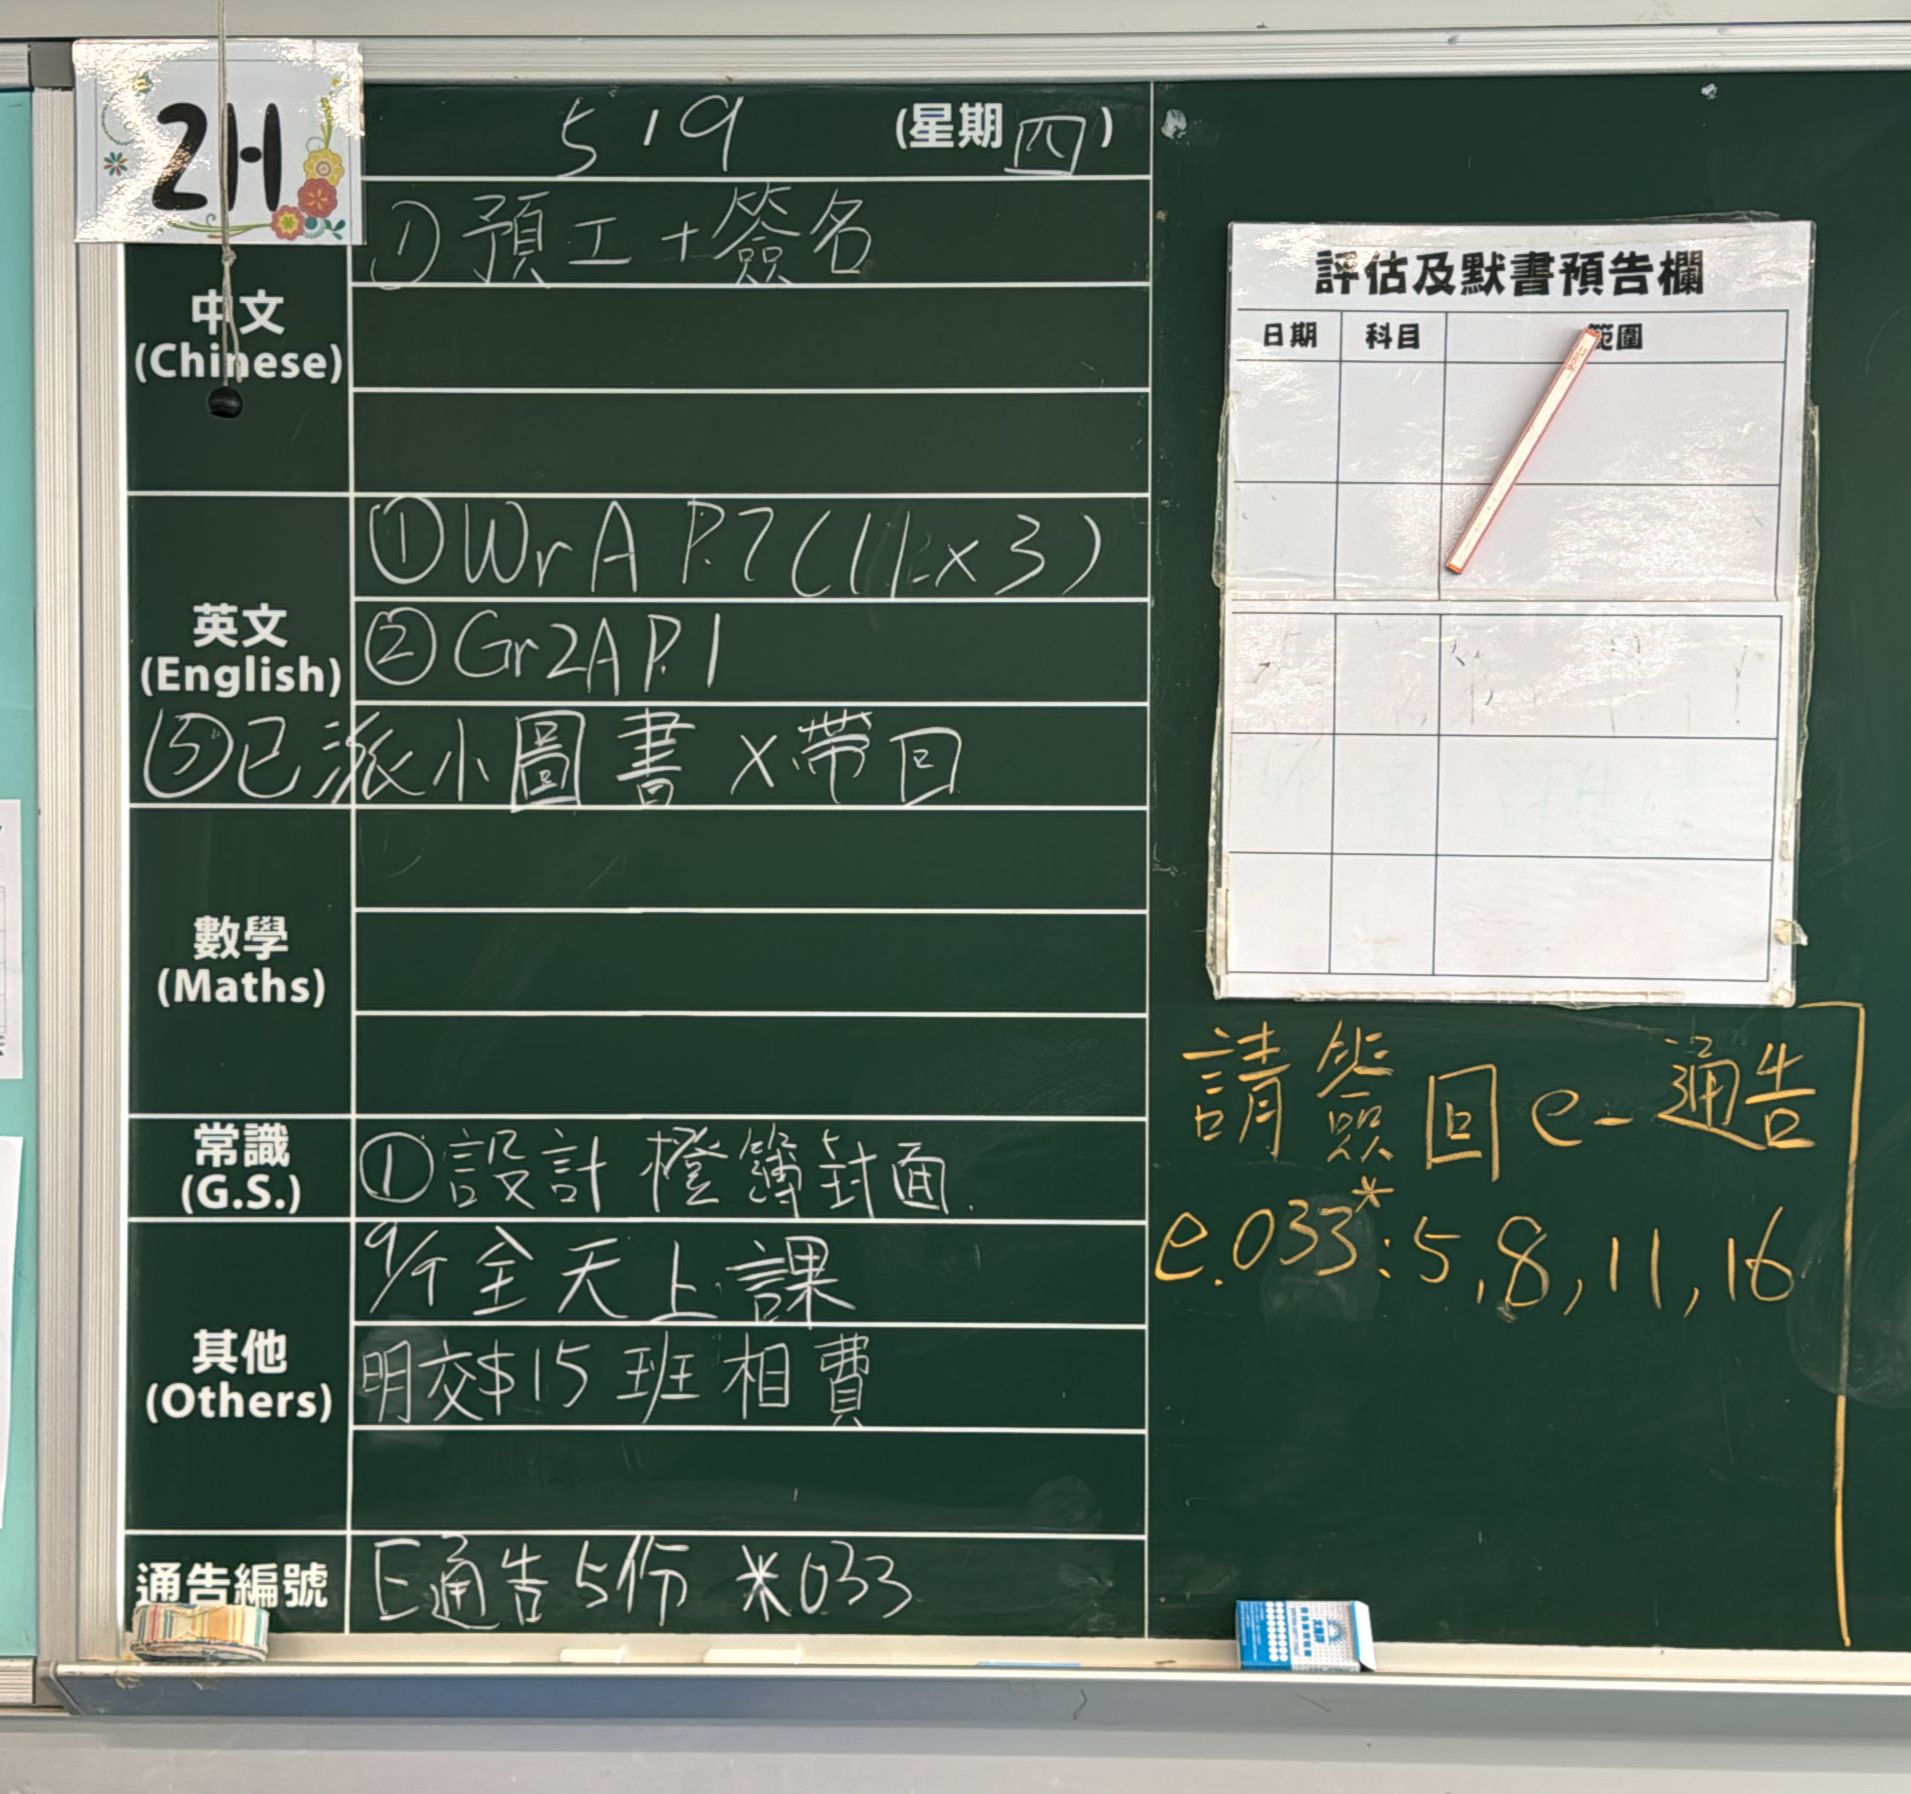 2H
5/9 (星期四)
中文
(Chinese)
① 預工+簽名
英文
(English)
① Wr A P.7 (11.x3)
② Gr2A P.1
⑤已派小圖書 x帶回
數學
(Maths)
常識
(G.S.)
① 設計橙簿封面.
其他
(Others)
9/9 全天上課
明交$15班相費
通告編號
E通告5份 *033
評估及默書預告欄
日期 科目 範圍
請簽回e-通告
e.033*:5,8,11,16